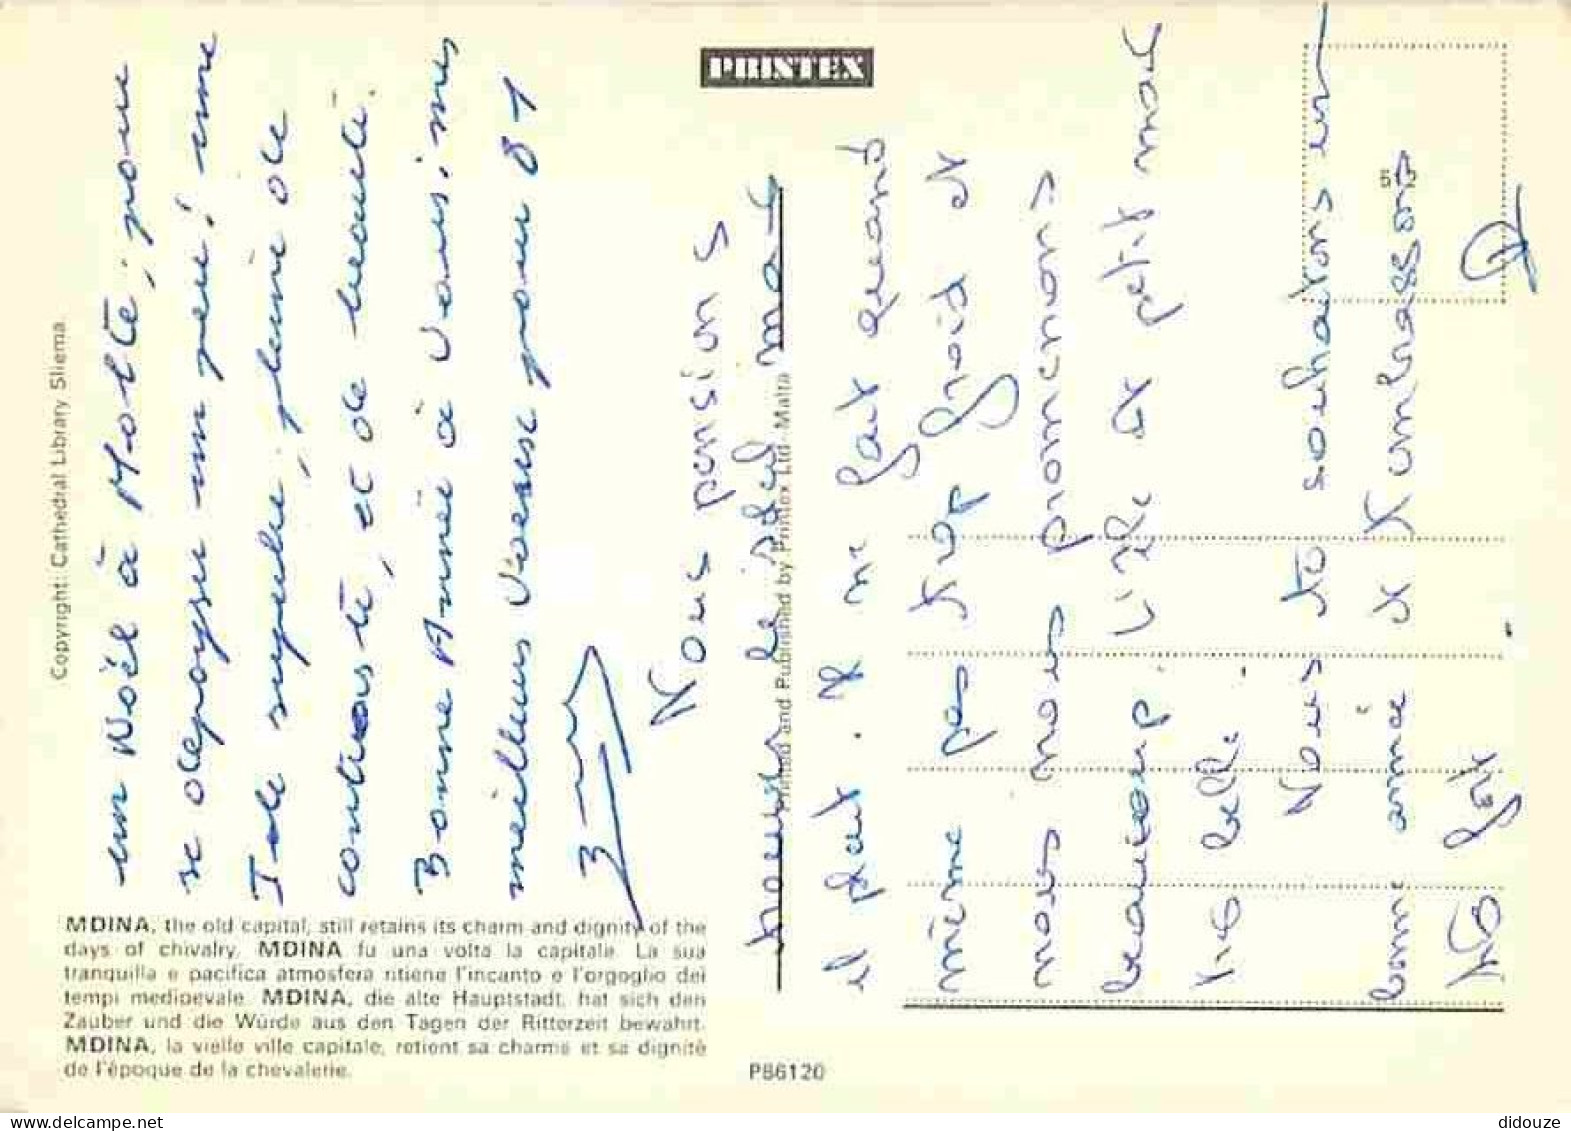 PRINTEX
un Noël à Malte, pour
se dépayser un peu! une
Isle superbe, pleine de
contrastes, et de beauté.
Bonne Année à vous, mes
meilleurs voeux pour 81
Nous pensions
trouver le soleil mais
il pleut. Il ne fait quand
même pas trop froid et
nous nous promenons
beaucoup. L'île est petite mais
très belle.
Nous te souhaitons une
bonne année et t'embrassons
très fort
Copyright: Cathedral Library Sliema.
Printed and Published by Printex Ltd. Malta
MDINA, the old capital, still retains its charm and dignity of the
days of chivalry. MDINA fu una volta la capitale. La sua
tranquilla e pacifica atmosfera ritiene l'incanto e l'orgoglio dei
tempi medioevale. MDINA, die alte Hauptstadt, hat sich den
Zauber und die Würde aus den Tagen der Ritterzeit bewahrt.
MDINA, la vieille ville capitale, retient sa charme et sa dignité
de l'époque de la chevalerie.
P86120
didouze